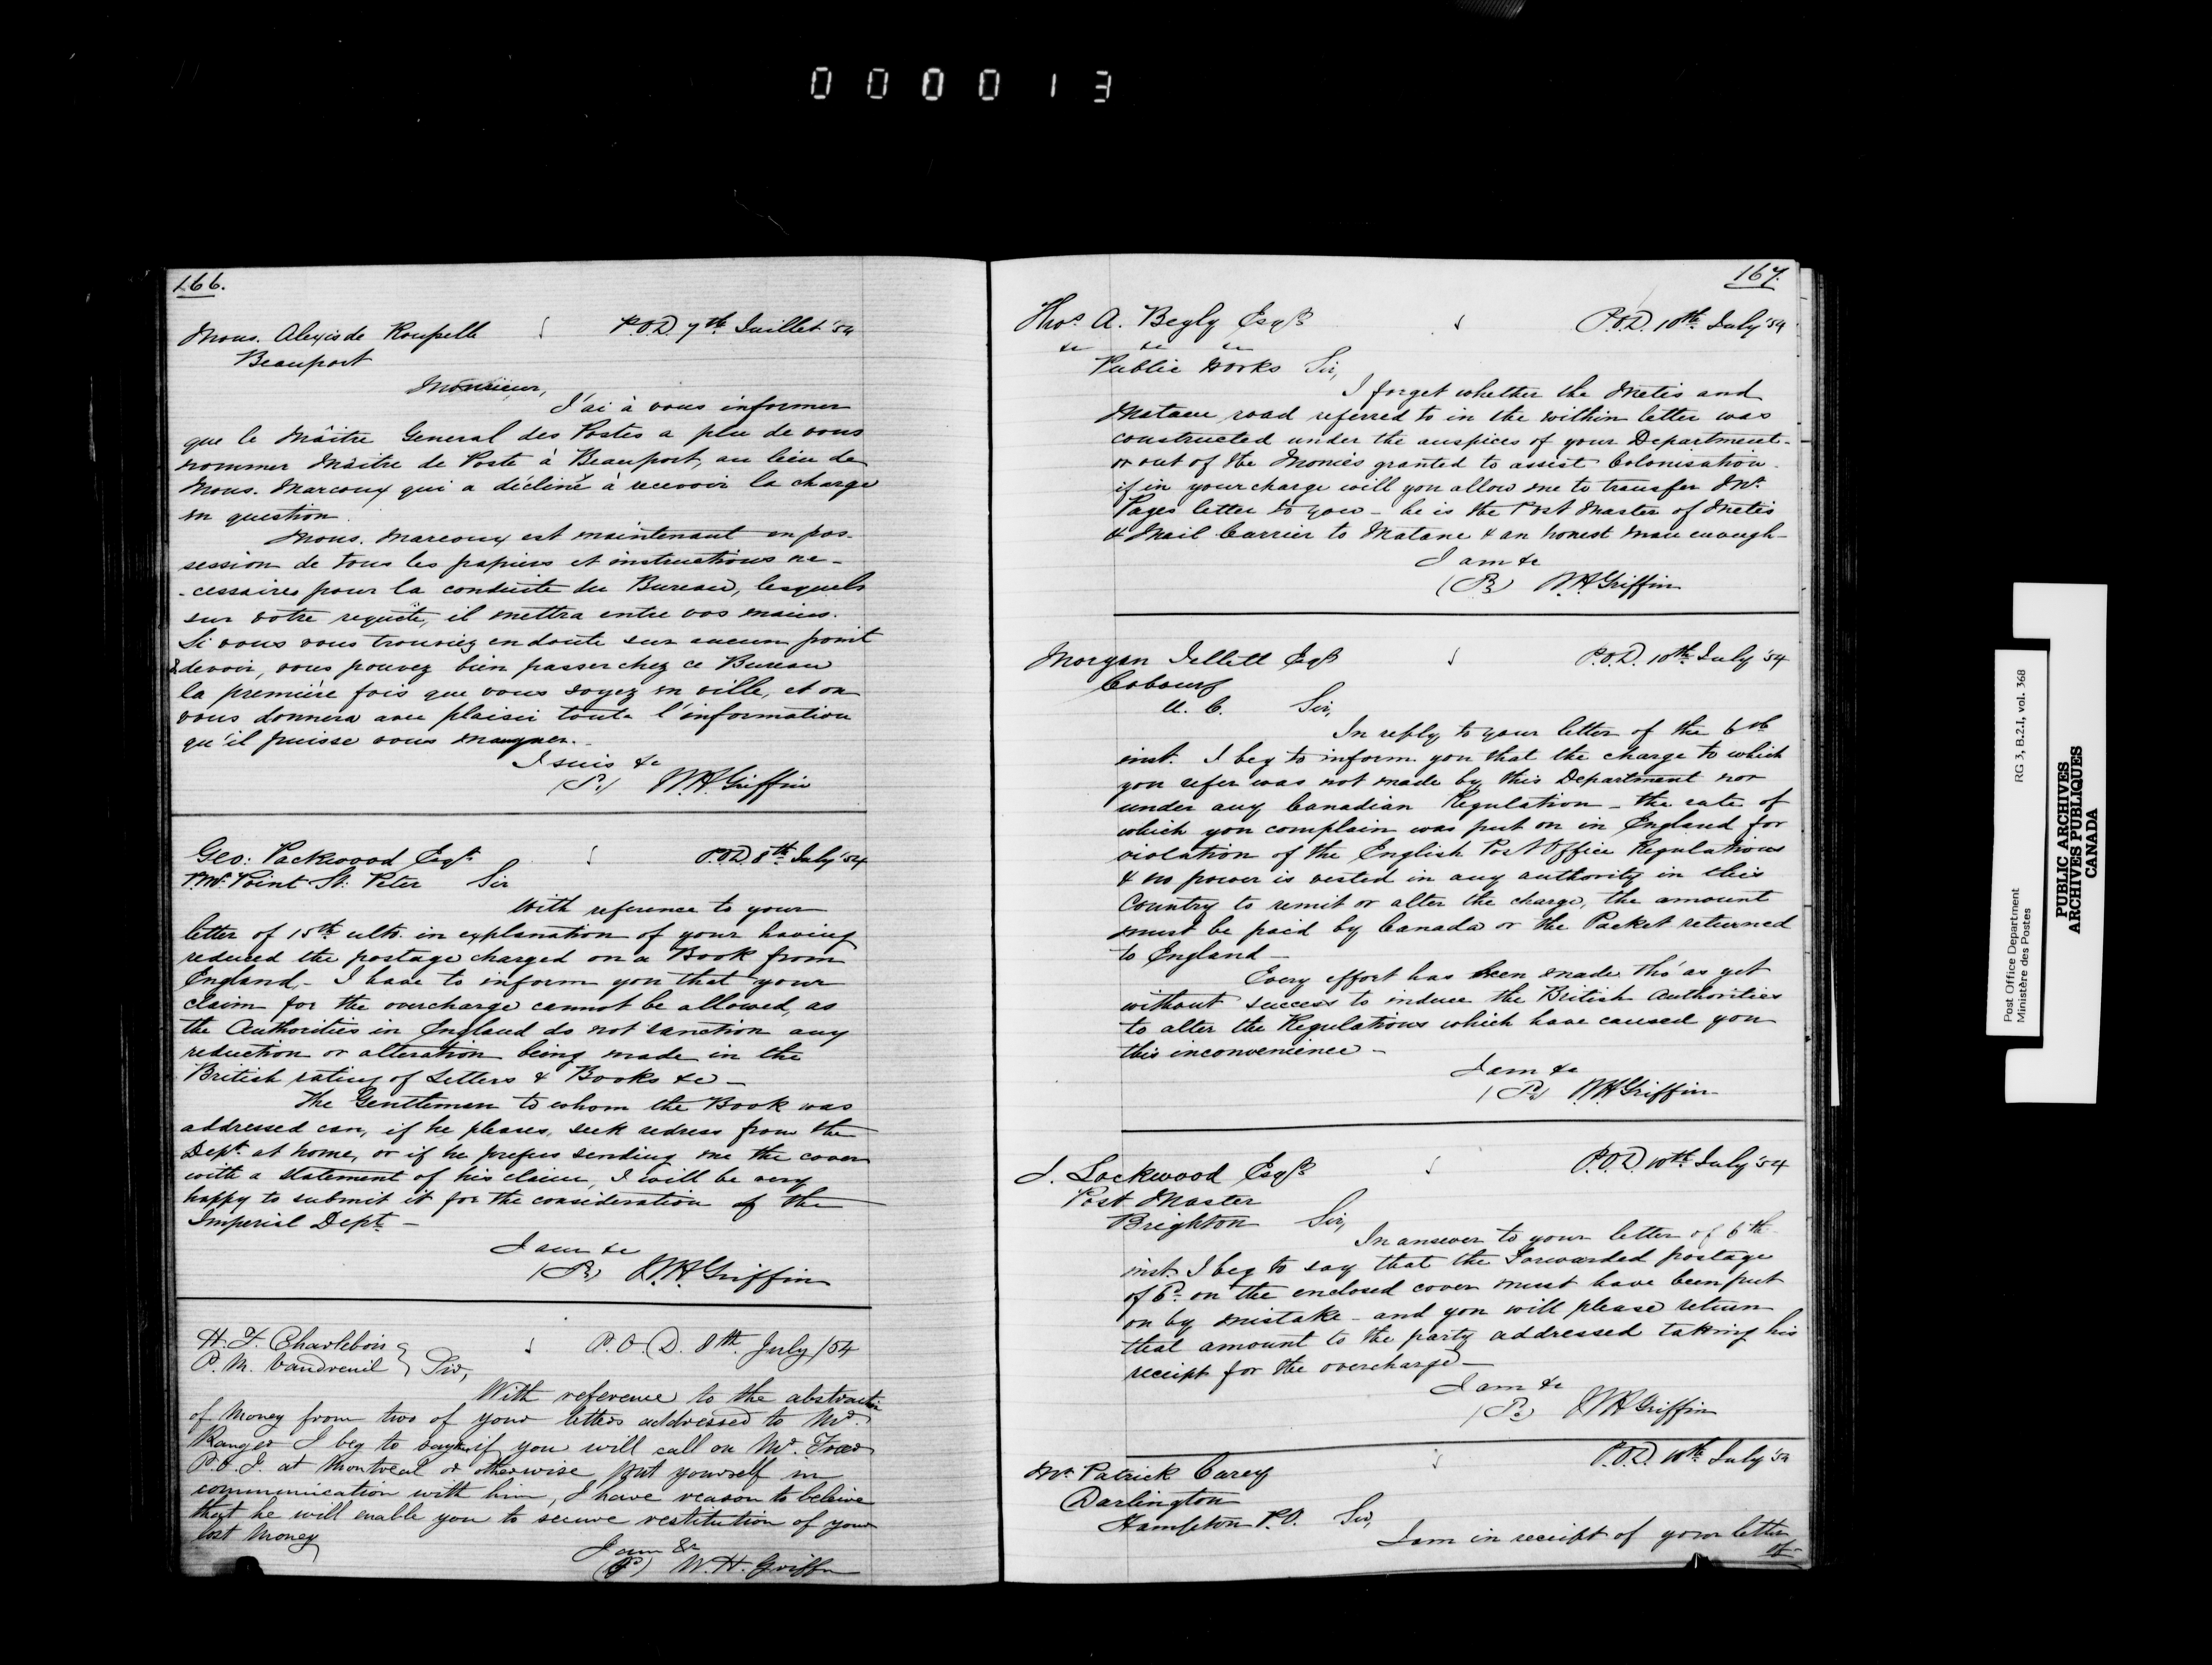 000013
166.
Mons. Alexis de Roupelle P.O.D. 7th Juillet '54
Beauport
Monsieur,
J'ai à vous informer
que le Maître General des Postes a plu de vous
nommer Maître de Poste à Beauport, au lieu de
Mons. Marcoux qui a décliné à recevoir la charge
en question.
Mons. Marcoux est maintenant en pos-
session de tous les papiers et instructions ne-
-cessaires pour la conduite du Bureau, lesquels
sur votre requête, il mettra entre vos mains.
Si vous vous trouviez en doute sur aucun point
& devoir, vous pouvez bien passer chez ce Bureau
la première fois que vous soyez en ville, et on
vous donnera avec plaisir toute l'information
qu'il puisse vous manquer.
Je suis &c
(P.) W.H. Griffin
Geo: Packwood Esqr. P.O.D. 8th July '54
P.M. Point St: Peter Sir
With reference to your
letter of 15th ulto. in explanation of your having
reduced the postage charged on a Book from
England,- I have to inform you that your
claim for the overcharge cannot be allowed, as
the Authorities in England do not sanction any
reduction or alteration being made in the
British rating of Letters & Books &c -
The Gentleman to whom the Book was
addressed can, if he pleases, seek redress from the
Dept. at home, or if he prefers sending me the cover
with a statement of his claim, I will be very
happy to submit it for the consideration of the
Imperial Dept. -
I am &c
(P.) W.H. Griffin
H. F. Charlebois P.O.D. 8th July /54
P. M. Vaudreuil Sir,
With reference to the abstraction
of Money from two of your letters addressed to Mr.
Ranger I beg to say if you will call on Mr. Freer
P.O.I. at Montreal or otherwise put yourself in
communication with him, I have reason to beleive
that he will enable you to secure restitution of your
lost Money
I am &c
(P) W. H. Griffin
167.
Thos. A. Begly Esqr. P.O.D. 10th July '54
&c &c &c
Public Works Sir,
I forget whether the Metis and
Matane road referred to in the within letter was
constructed under the auspices of your Department-
or out of the Monies granted to assist Colonisation-
if in your charge will you allow me to transfer Mr.
Pages letter to you - he is the Post Master of Metis
& Mail Carrier to Matane & an honest man enough-
I am &c
(P.) W.H. Griffin
Morgan Jellett Esqr P.O.D. 10th July '54
Cobourg
U. C. Sir,
In reply to your letter of the 6th
inst. I beg to inform you that the charge to which
you refer was not made by this Department nor
under any Canadian Regulation - the rate of
which you complain was put on in England for
violation of the English Post Office Regulations
& no power is vested in any authority in this
Country to remit or alter the charge, the amount
must be paid by Canada or the Packet returned
to England -
Every effort has been made tho' as yet
without success to induce the British Authorities
to alter the Regulations which have caused you
this inconvenience -
I am &c
(P.) W.H. Griffin
J. Lockwood Esqr. P.O.D. 10th July '54
Post Master
Brighton Sir,
In answer to your letter of 6th
inst. I beg to say that the Forwarded postage
of 6d. on the enclosed cover must have been put
on by mistake - and you will please return
that amount to the party addressed taking his
receipt for the overcharge -
I am &c
(P.) W.H. Griffin
Mr. Patrick Carey P.O.D. 10th July '54
Darlington
Hampton P.O. Sir,
I am in receipt of your letter
of
Post Office Department RG 3, B.2.1, vol. 368
Ministère des Postes
PUBLIC ARCHIVES
ARCHIVES PUBLIQUES
CANADA